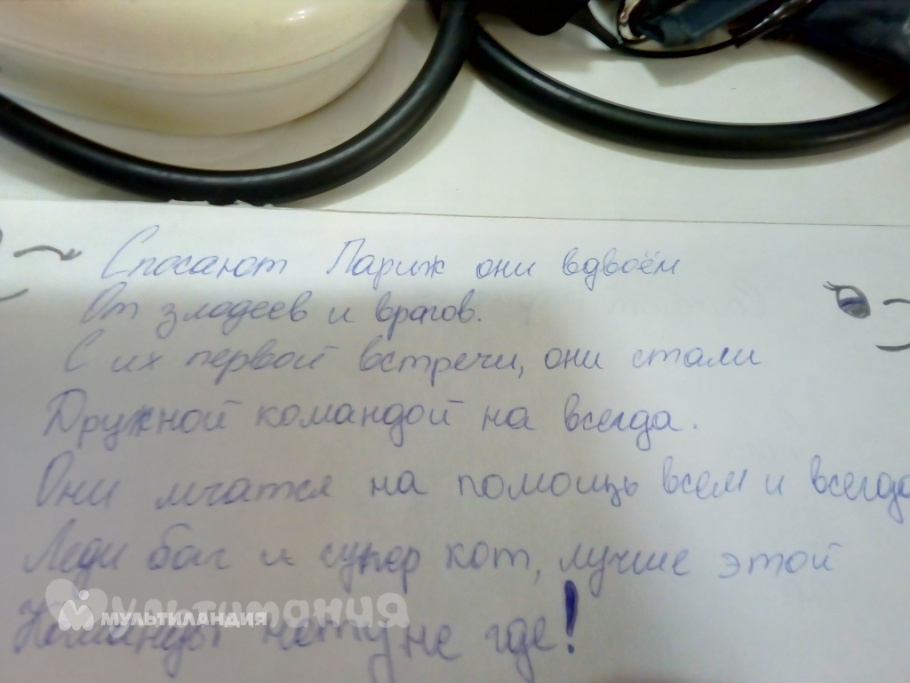 Спасают Париж они вдвоём
От злодеев и врагов.
С их первой встречи, они стали
Дружной командой на всегда.
Они мчатся на помощь всем и всегда
Леди баг и супер кот, лучше этой
Команды нету не где!
Мультимания
МУЛЬТИЛАНДИЯ